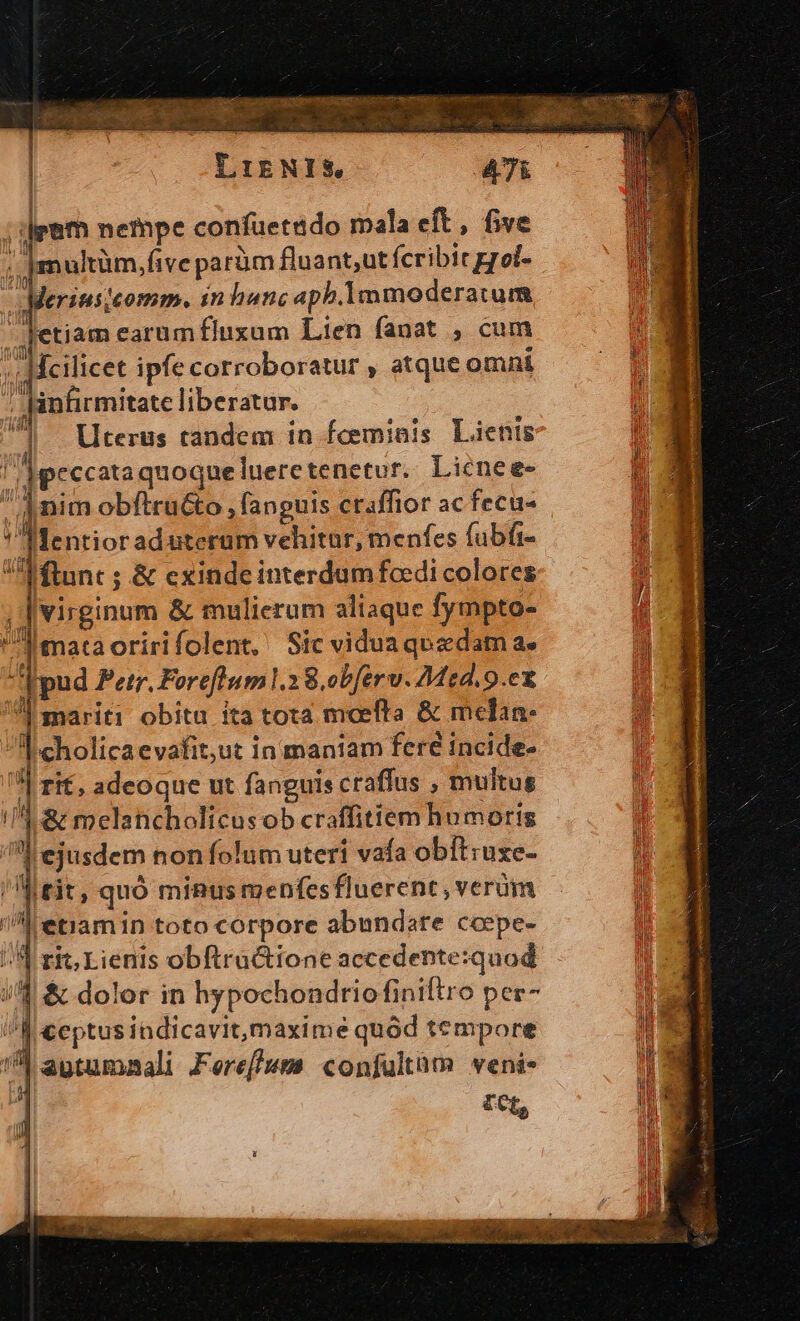 LIENIS, 471
ipsam nempe consuetudo mala est, sive
multùm, sive parùm fluant, ut scribit Hol-
lerius comm. in hunc aph. Immoderatum
etiam earum fluxum Lien sanat, cum
scilicet ipse corroboratur, atque omni
infirmitate liberatur.
Uterus tandem in fœminis Lienis
peccata quoque luere tenetur. Liene e-
nim obstructo, sanguis crassior ac fecu-
lentior ad uterum vehitur, menses subsi-
stunt; & exinde interdum fœdi colores
virginum & mulierum aliaque sympto-
mata oriri solent. Sic vidua quædam a-
pud Petr. Forestum l.28. observ. Med. 9. ex
mariti obitu ita tota mœsta & melan-
cholica evasit, ut in maniam ferè incide-
rit, adeoque ut sanguis crassus, multus
& melancholicus ob crassitiem humoris
ejusdem non solum uteri vasa obstruxe-
rit, quò minus menses fluerent, verùm
etiam in toto corpore abundare cœpe-
rit, Lienis obstructione accedente: quod
& dolor in hypochondrio sinistro per-
ceptus indicavit, maximè quòd tempore
autumnali Forestum consultùm veni-
ret,